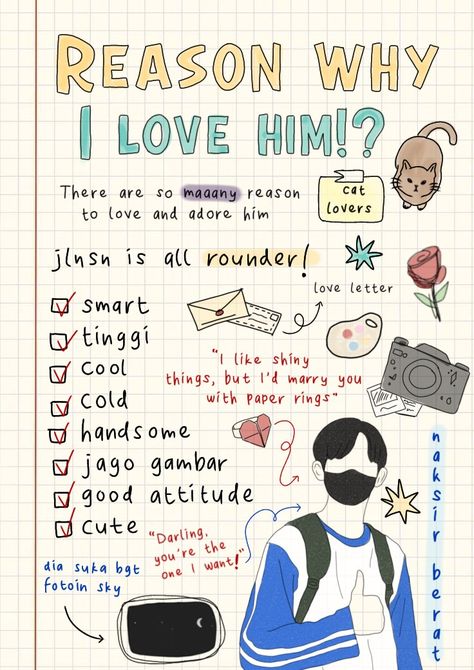 REASON WHY
I LOVE HIM!?
There are so maaany reason
to love and adore him
cat
lovers
jlnsn is all rounder!
love letter
smart
tinggi
cool
cold
handsome
jago gambar
good attitude
cute
"I like shiny
things, but I'd marry you
with paper rings"
"Darling,
you're the
one I want!"
dia suka bgt
fotoin sky
naksir berat